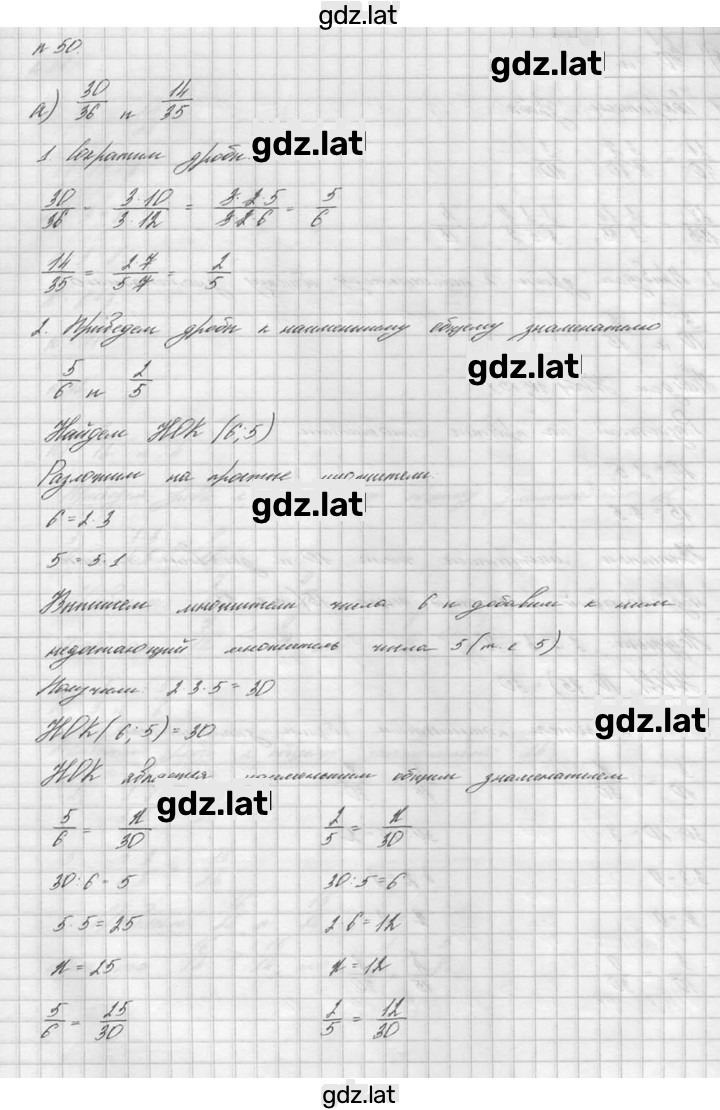 gdz.lat
n 50.
gdz.lat
а) 30/36 и 14/35
1. Сократим дроби.
gdz.lat
30/36 = 3·10/3·12 = 3·2·5/3·2·6 = 5/6
14/35 = 2·7/5·7 = 2/5
2. Приведем дроби к наименьшему общему знаменателю
gdz.lat
5/6 и 2/5
Найдем НОК (6; 5)
Разложим на простые множители.
gdz.lat
6 = 2·3
5 = 5·1
Выпишем множители числа 6 и добавим к ним
недостающий множитель числа 5 (т. е 5).
Получили: 2·3·5 = 30
gdz.lat
НОК (6; 5) = 30
НОК является наименьшим общим знаменателем
gdz.lat
5/6 = x/30 2/5 = x/30
30 : 6 = 5 30 : 5 = 6
5·5 = 25 2·6 = 12
x = 25 x = 12
5/6 = 25/30 2/5 = 12/30
gdz.lat